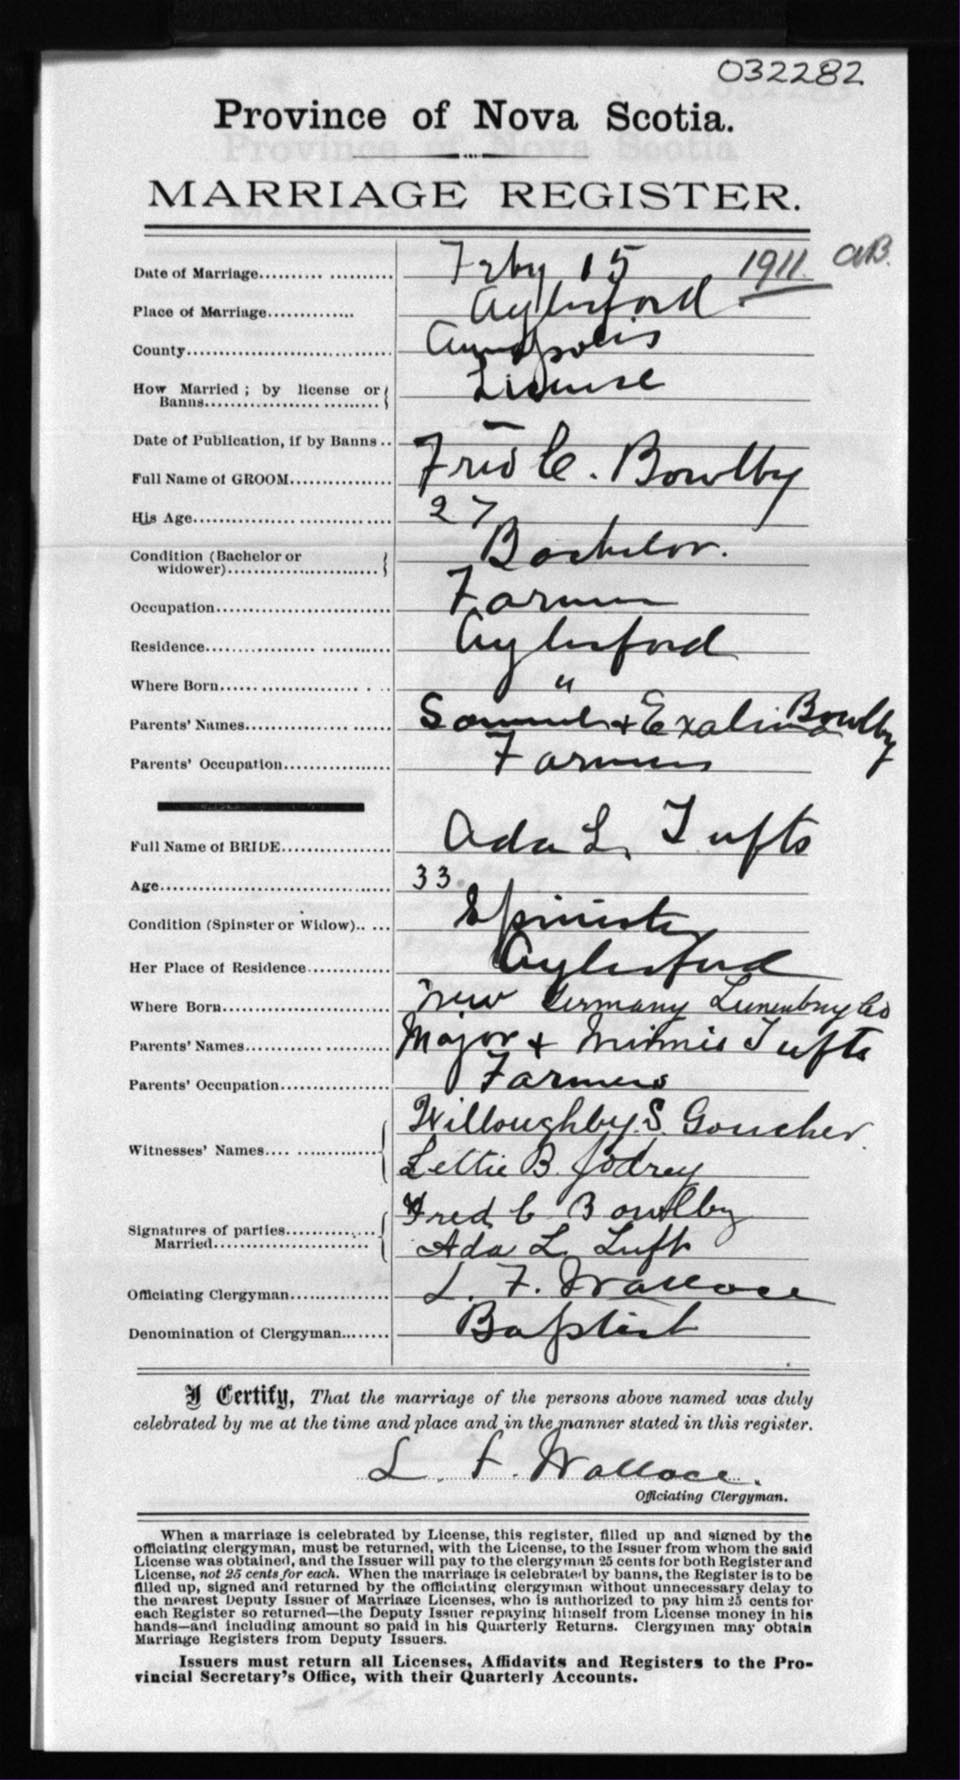 032282
Province of Nova Scotia.
MARRIAGE REGISTER.
Date of Marriage.......... Feby 15 1911. AB.
Place of Marriage............. Aylesford
County............................... Annapolis
How Married ; by license or Banns........................ License
Date of Publication, if by Banns .. —
Full Name of GROOM............... Fred C. Bowlby
His Age.............................. 27
Condition (Bachelor or widower)........................ Bachelor.
Occupation.......................... Farmer
Residence........................... Aylesford
Where Born........................ "
Parents' Names..................... Samuel & Exalina Bowlby
Parents' Occupation............... Farmers
Full Name of BRIDE............... Ada L. Tufts
Age................................... 33.
Condition (Spinster or Widow).. ... Spinster
Her Place of Residence............ Aylesford
Where Born........................ New Germany Lunenburg Co
Parents' Names..................... Major & Minnie Tufts
Parents' Occupation............... Farmers
Witnesses' Names.... ............. Willoughby S. Goucher.
Lettie B. Jodrey
Signatures of parties Married........................ Fred C Bowlby
Ada L. Tufts
Officiating Clergyman............... L. F. Wallace
Denomination of Clergyman........ Baptist
I Certify, That the marriage of the persons above named was duly
celebrated by me at the time and place and in the manner stated in this register.
L. F. Wallace.
Officiating Clergyman.
When a marriage is celebrated by License, this register, filled up and signed by the
officiating clergyman, must be returned, with the License, to the Issuer from whom the said
License was obtained, and the Issuer will pay to the clergyman 25 cents for both Register and
License, not 25 cents for each. When the marriage is celebrated by banns, the Register is to be
filled up, signed and returned by the officiating clergyman without unnecessary delay to
the nearest Deputy Issuer of Marriage Licenses, who is authorized to pay him 25 cents for
each Register so returned—the Deputy Issuer repaying himself from License money in his
hands—and including amount so paid in his Quarterly Returns. Clergymen may obtain
Marriage Registers from Deputy Issuers.
Issuers must return all Licenses, Affidavits and Registers to the Pro-
vincial Secretary's Office, with their Quarterly Accounts.